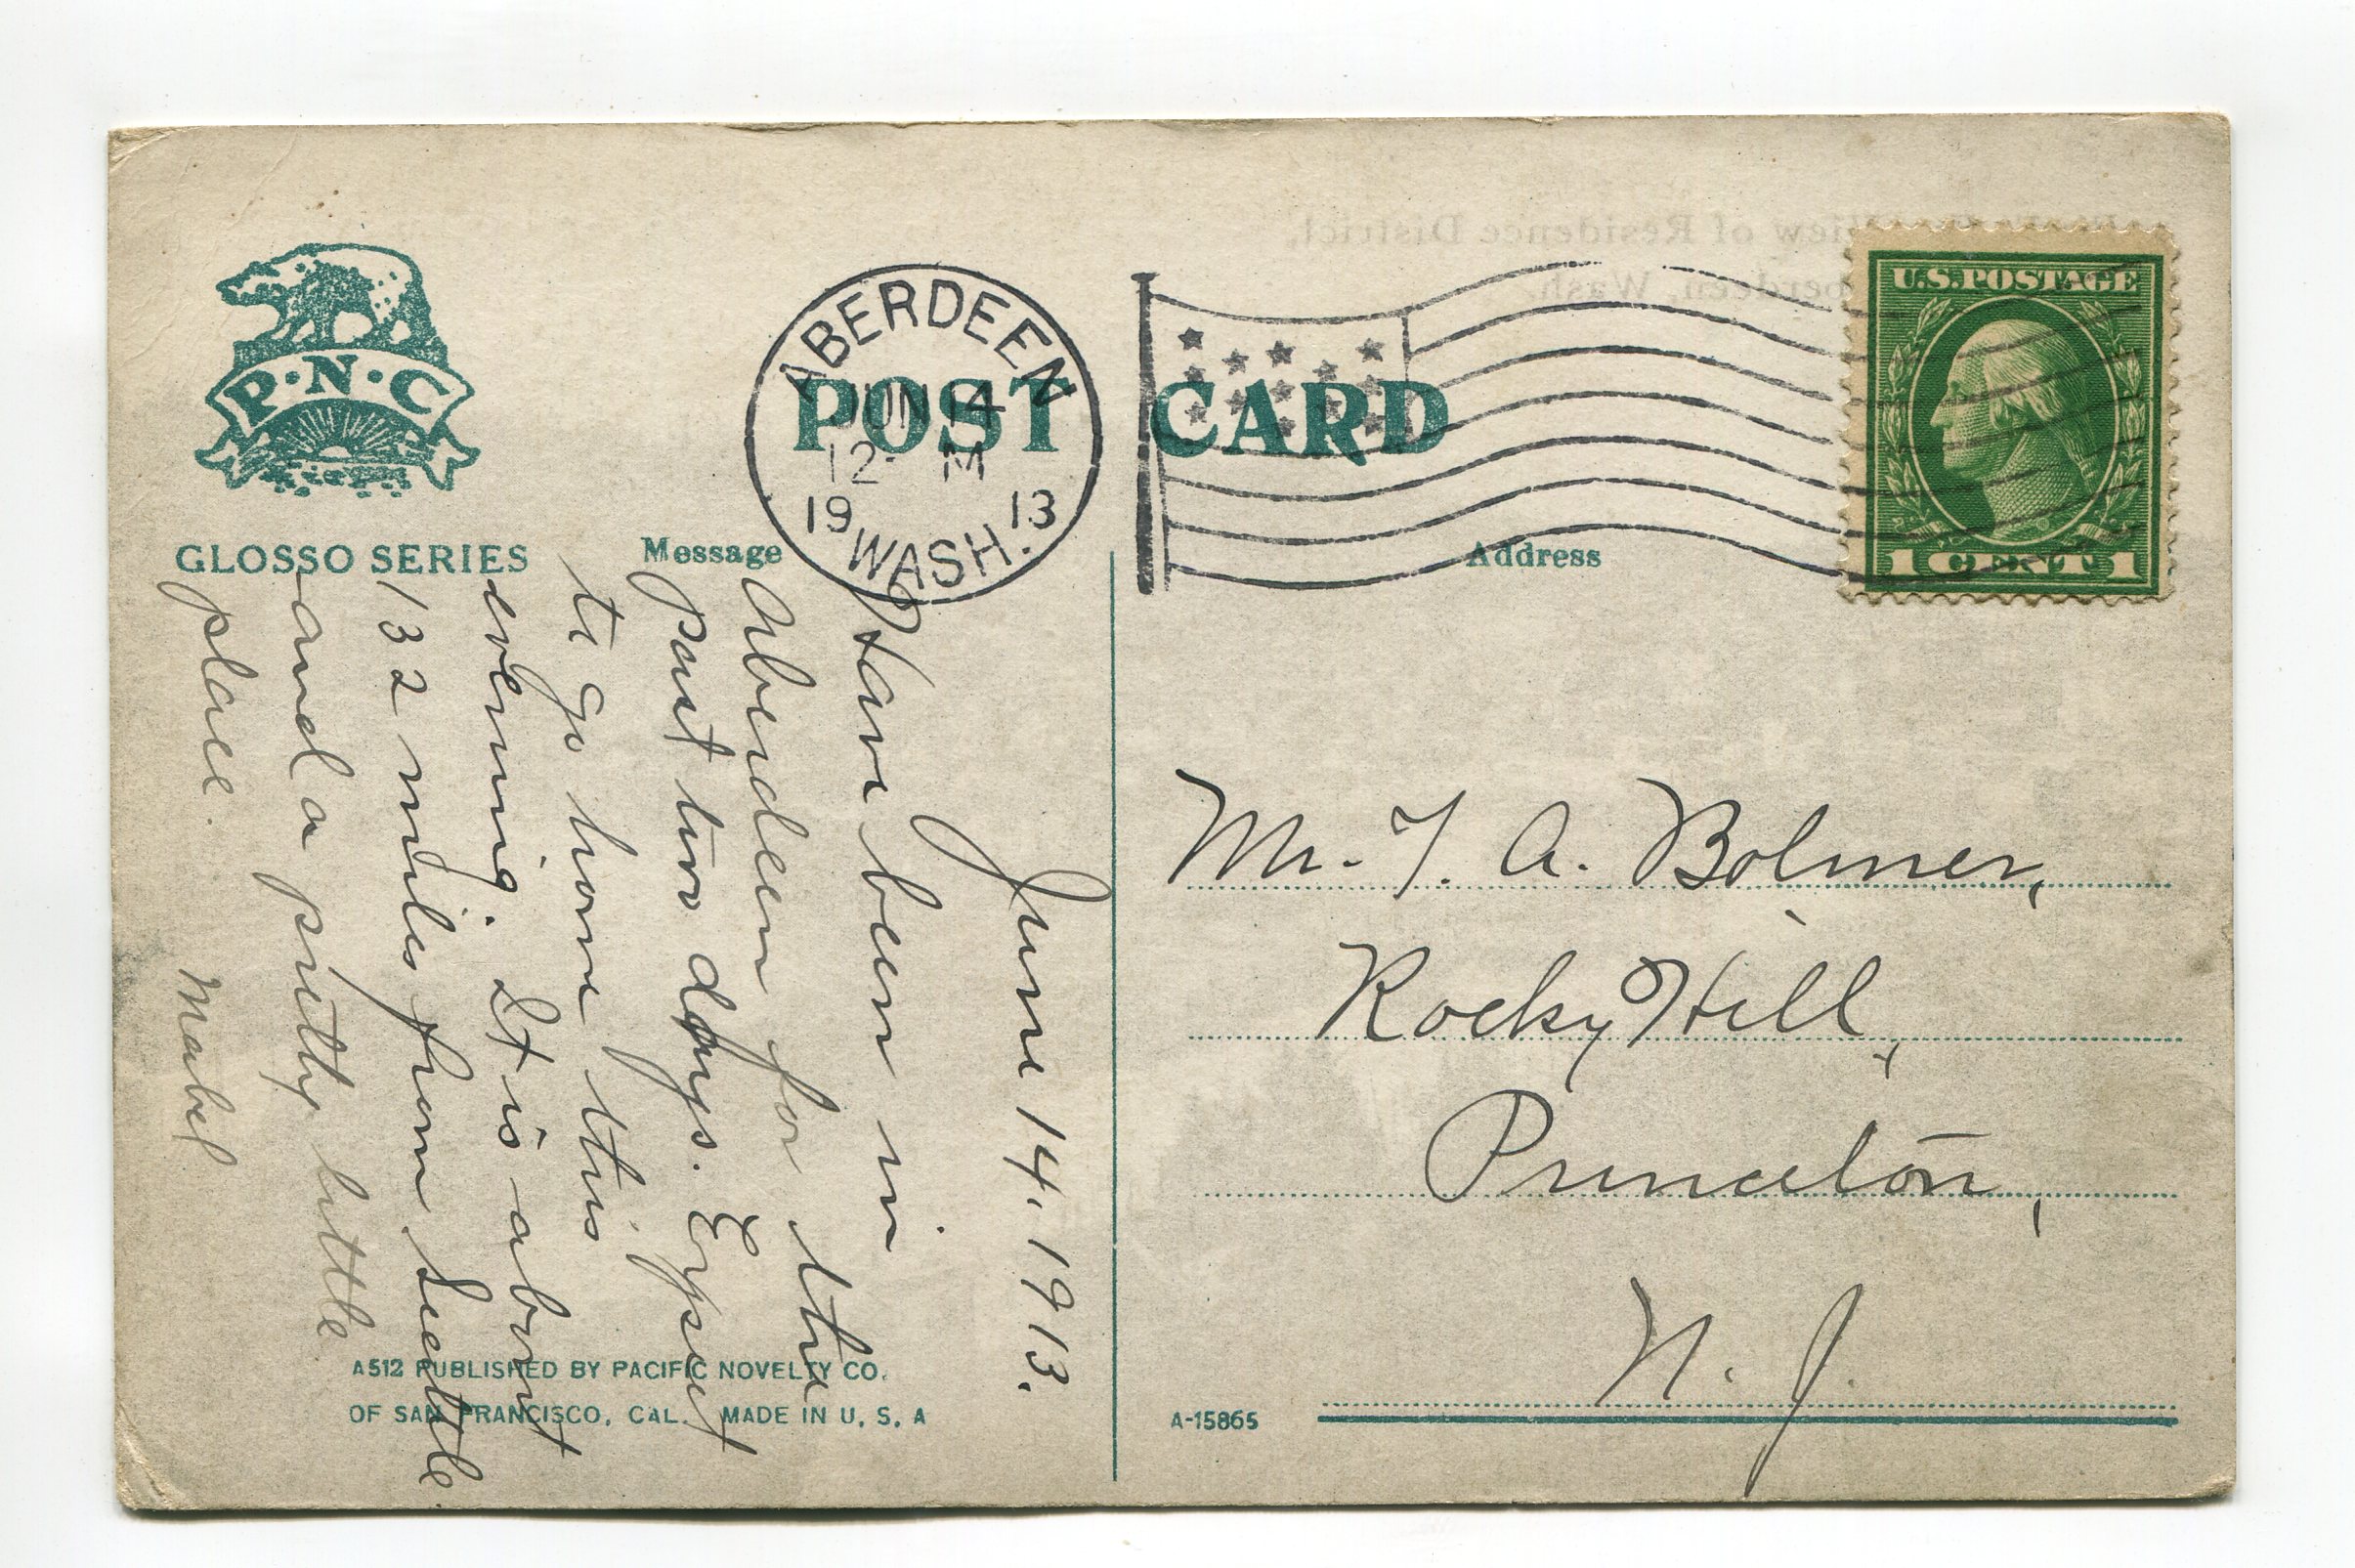 View of Residence District,
Aberdeen, Wash.
P·N·C
GLOSSO SERIES
ABERDEEN
JUN 14
12 M
19 13
WASH.
POST CARD
U.S. POSTAGE
1 CENT 1
Message
Address
June 14, 1913.
Have been in
Aberdeen for the
past two days. Expect
to go home this
evening. It is about
132 miles from Seattle
and a pretty little
place.
Mabel
Mr. T. A. Bolmer,
Rocky Hill,
Princeton,
N. J.
A512 PUBLISHED BY PACIFIC NOVELTY CO.
OF SAN FRANCISCO, CAL. MADE IN U. S. A
A-15865